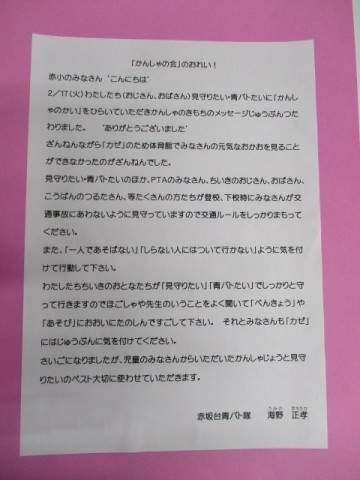 「かんしゃの会」のおれい！
赤小のみなさん　‘こんにちは’
２／１７（火）わたしたち（おじさん、おばさん）見守りたい・青パトたいに「かんし
ゃのかい」をひらいていただきかんしゃのきもちのメッセージじゅうぶんつた
わりました。　‘ありがとうございました’
ざんねんながら「カゼ」のため体育館でみなさんの元気なおかおを見ること
ができなかったのがざんねんでした。
見守りたい・青パトたいのほか、ＰＴＡのみなさん、ちいきのおじさん、おばさん、
こうばんのつるたさん、等たくさんの方たちが登校、下校時にみなさんが交
通事故にあわないように見守っていますので交通ルールをしっかりまもって
ください。
また、「一人であそばない」「しらない人にはついて行かない」ように気を付
けて行動して下さい。
わたしたちちいきのおとなたちが「見守りたい」「青パトたい」でしっかりと守
って行きますのでほごしゃや先生のいうことをよく聞いて「べんきょう」や
「あそび」におおいにたのしんですごして下さい。　それとみなさんも「カゼ」
にはじゅうぶんに気を付けてください。
さいごになりましたが、児童のみなさんからいただいたかんしゃじょうと見守
りたいのベスト大切に使わせていただきます。
赤坂台青パト隊　海野　正孝